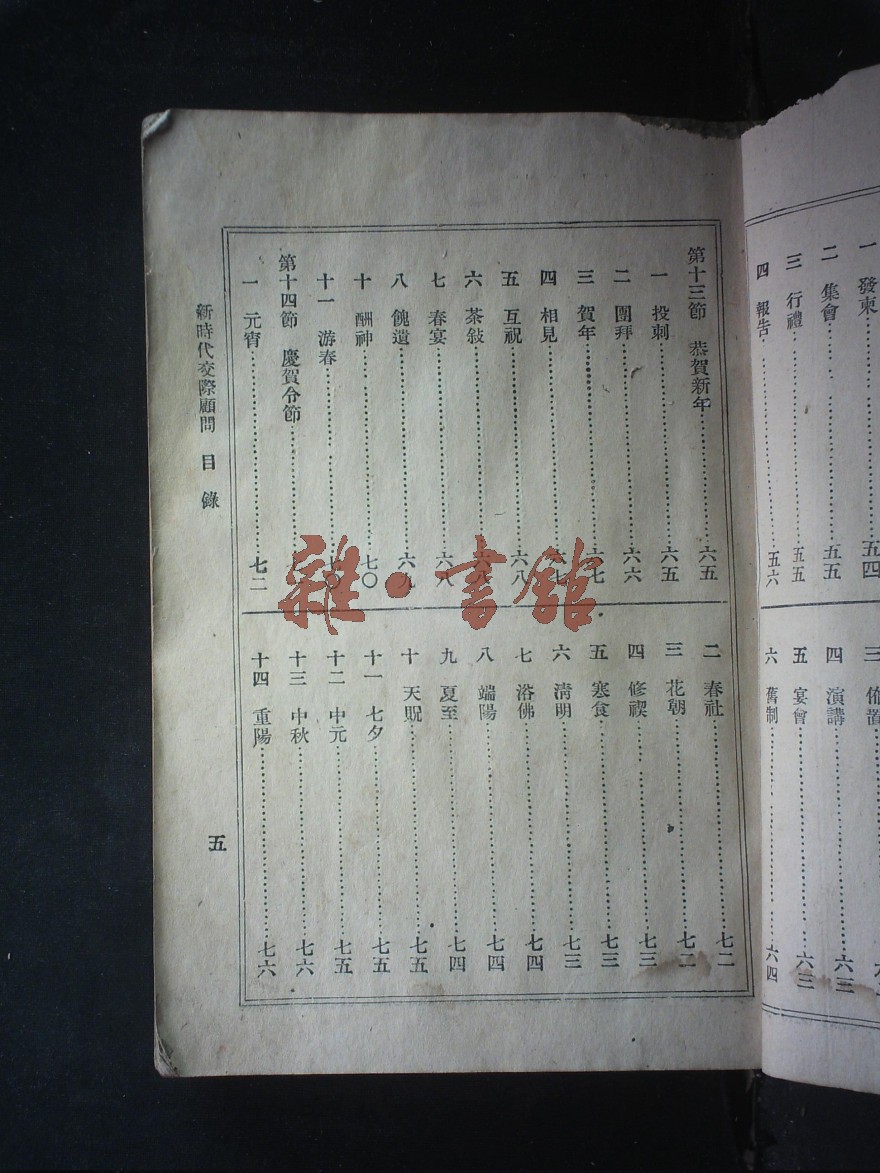 一 發柬……五四
二 集會……五五
三 行禮……五五
四 報告……五六
三 佈置
四 演講……六三
五 宴會……六三
六 舊制……六四
第十三節 恭賀新年……六五
一 投刺……六五
二 團拜……六六
三 賀年……六七
四 相見……六七
五 互祝……六八
六 茶敍……六八
七 春宴……六八
八 餽遺……六九
十 酬神……七〇
十一 游春……七〇
第十四節 慶賀令節……
一 元宵……七二
二 春社……七二
三 花朝……七二
四 修禊……七三
五 寒食……七三
六 淸明……七三
七 浴佛……七四
八 端陽……七四
九 夏至……七四
十 天貺……七五
十一 七夕……七五
十二 中元……七五
十三 中秋……七六
十四 重陽……七六
新時代交際顧問 目錄
五
雜·書館